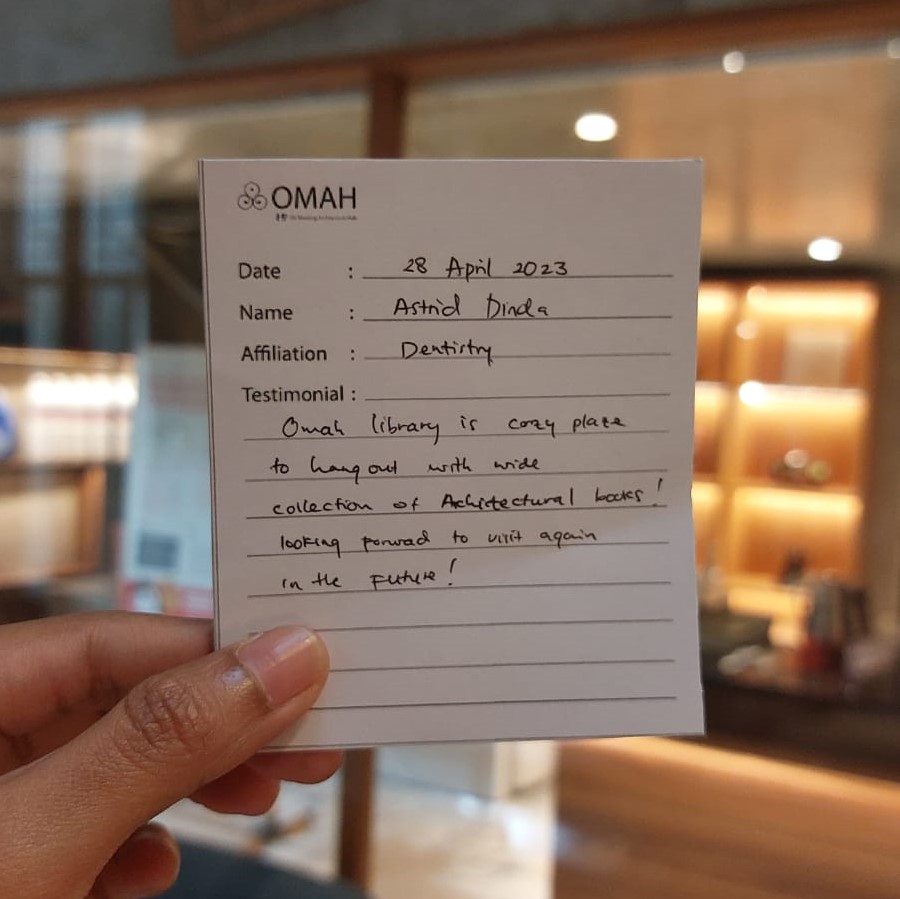 OMAH
Date : 28 April 2023
Name : Astrid Dinda
Affiliation : Dentistry
Testimonial :
Omah library is cozy place
to hang out with wide
collection of Architectural books!
looking forwad to visit again
in the future!